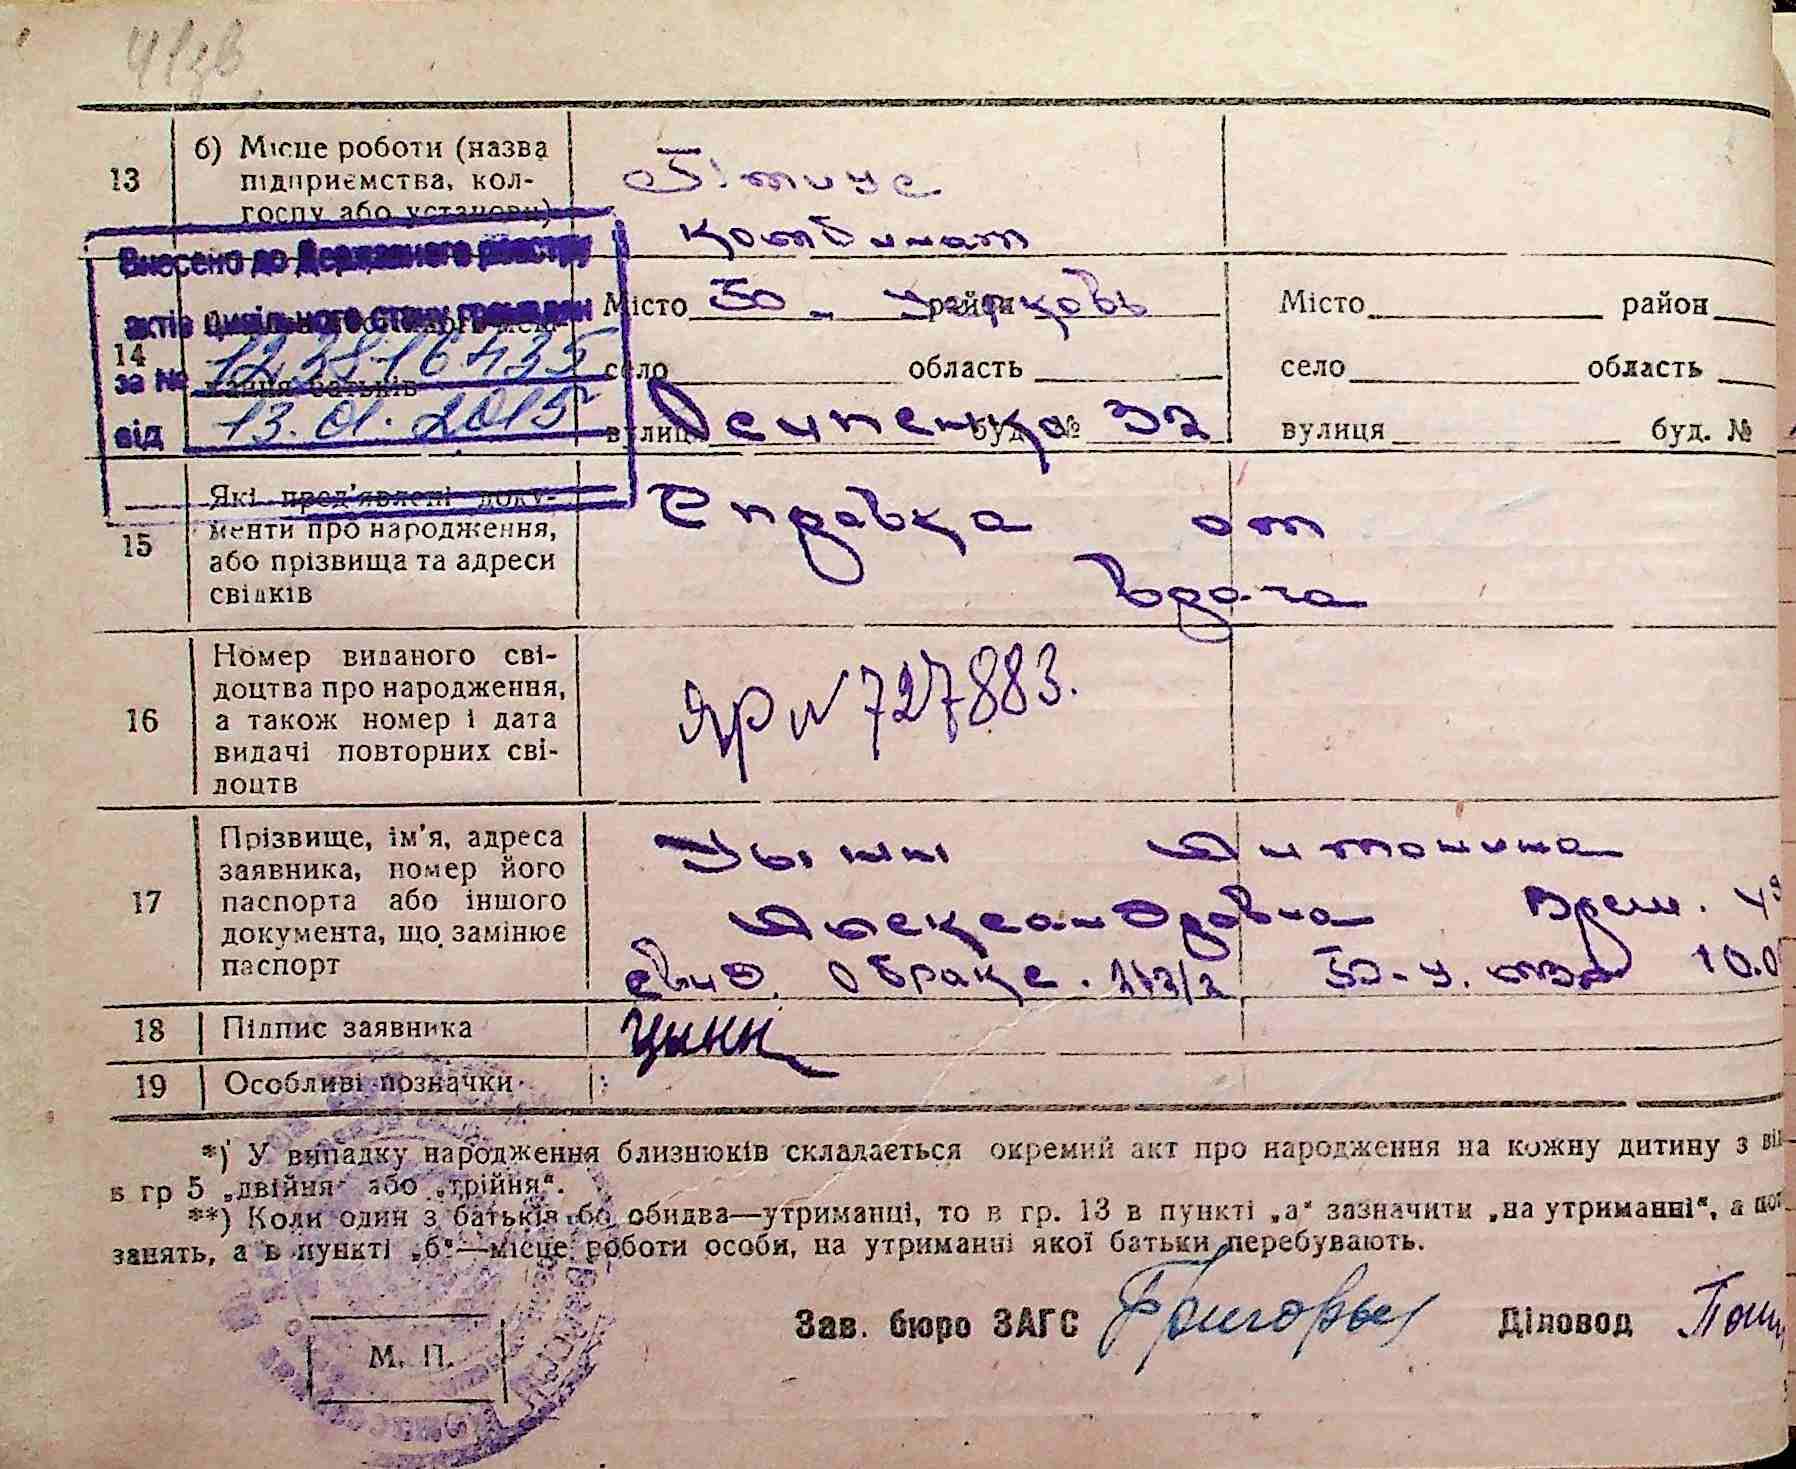 13
б) Місце роботи (назва
підприємства, кол-
госпу або установи)
комбинат
Внесено до Державного реєстру
актів цивільного стану громадян
за №
від 13.01.2015
14
жання батьків
Місто Б. Церковь район
село область
вулиця буд. № 32
Місто район
село область
вулиця буд. №
15
Які пред'явлені доку-
менти про народження,
або прізвища та адреси
свідків
Справка от
врача
16
Номер виданого сві-
доцтва про народження,
а також номер і дата
видачі повторних сві-
доцтв
ЯР № 727883.
17
Прізвище, ім'я, адреса
заявника, номер його
паспорта або іншого
документа, що замінює
паспорт
Цынн Антонина
Александровна Врем.
свид. о браке. Б-Ц.
18 Підпис заявника
Цынн
19 Особливі позначки
*) У випадку народження близнюків складається окремий акт про народження на кожну дитину з
в гр 5 „двійня“ або „трійня“.
**) Коли один з батьків бо обидва—утриманці, то в гр. 13 в пункті „а“ зазначити „на утриманні“, а
занять, а в пункті „б“—місце роботи особи, на утриманні якої батьки перебувають.
М. П.
Зав. бюро ЗАГС Діловод